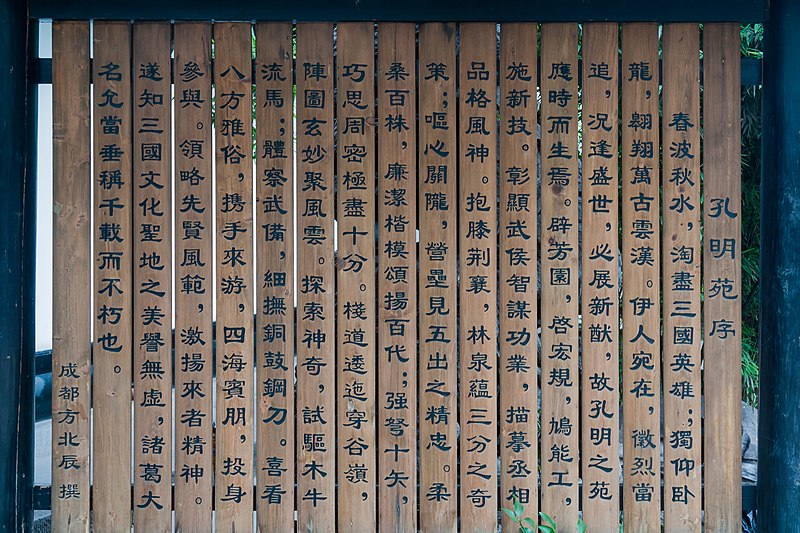 孔明苑序
春波秋水，淘盡三國英雄；獨仰卧
龍，翱翔萬古雲漢。伊人宛在，徽烈當
追，況逢盛世，必展新猷，故孔明之苑
應時而生焉。辟芳園，啓宏規，鳩能工，
施新技。彰顯武侯智謀功業，描摹丞相
品格風神。抱膝荆襄，林泉蘊三分之奇
策；嘔心關隴，營壘見五出之精忠。柔
桑百株，廉潔楷模頌揚百代；强弩十矢，
巧思周密極盡十分。棧道逶迤穿谷嶺，
陣圖玄妙聚風雲。探索神奇，試驅木牛
流馬；體察武備，細撫銅鼓鋼刀。喜看
八方雅俗，携手來游，四海賓朋，投身
參與。領略先賢風範，激揚來者精神。
遂知三國文化聖地之美譽無虛，諸葛大
名允當垂稱千載而不朽也。
成都方北辰撰